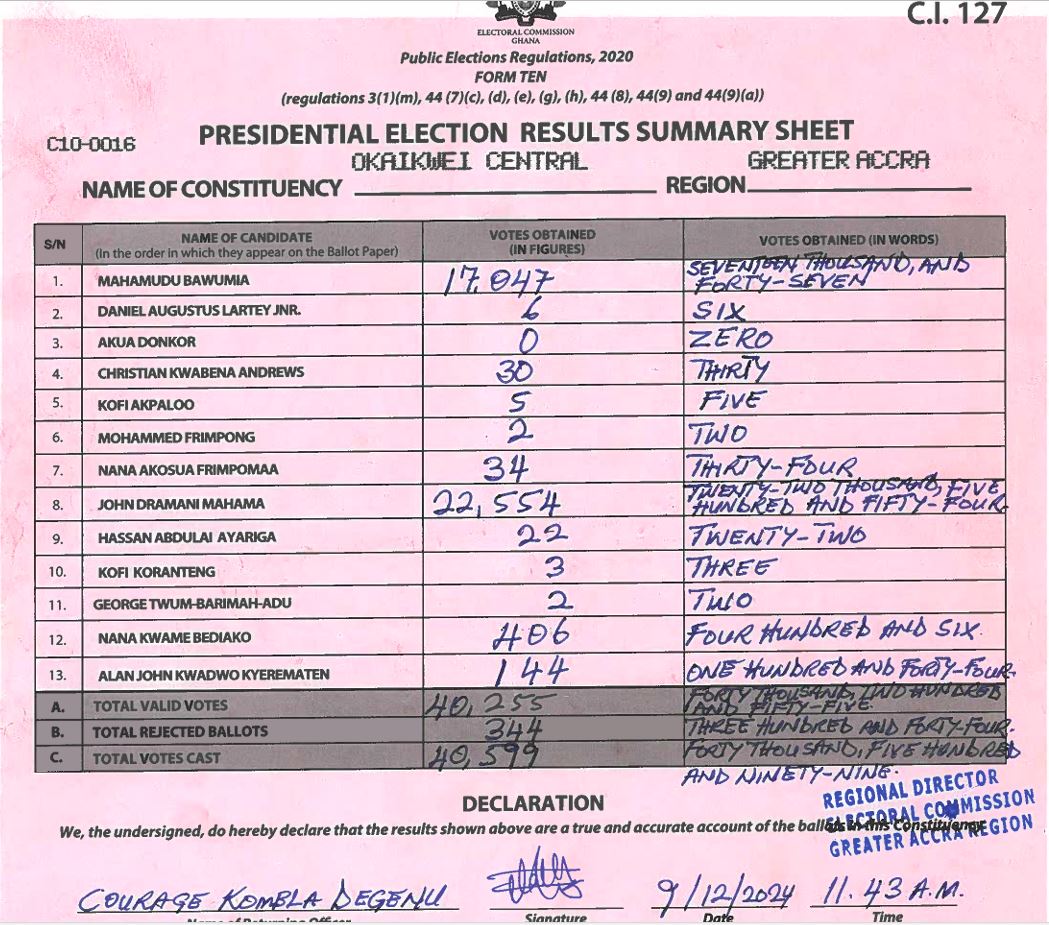 C.I. 127
ELECTORAL COMMISSION
GHANA
Public Elections Regulations, 2020
FORM TEN
(regulations 3(1)(m), 44 (7)(c), (d), (e), (g), (h), 44 (8), 44(9) and 44(9)(a))
C10-0016
PRESIDENTIAL ELECTION RESULTS SUMMARY SHEET
NAME OF CONSTITUENCY OKAIKWEI CENTRAL REGION GREATER ACCRA
S/N NAME OF CANDIDATE (In the order in which they appear on the Ballot Paper) VOTES OBTAINED (IN FIGURES) VOTES OBTAINED (IN WORDS)
1. MAHAMUDU BAWUMIA 17,047 SEVENTEEN THOUSAND, AND FORTY-SEVEN
2. DANIEL AUGUSTUS LARTEY JNR. 6 SIX
3. AKUA DONKOR 0 ZERO
4. CHRISTIAN KWABENA ANDREWS 30 THIRTY
5. KOFI AKPALOO 5 FIVE
6. MOHAMMED FRIMPONG 2 TWO
7. NANA AKOSUA FRIMPOMAA 34 THIRTY-FOUR
8. JOHN DRAMANI MAHAMA 22,554 TWENTY-TWO THOUSAND, FIVE HUNDRED AND FIFTY-FOUR
9. HASSAN ABDULAI AYARIGA 22 TWENTY-TWO
10. KOFI KORANTENG 3 THREE
11. GEORGE TWUM-BARIMAH-ADU 2 TWO
12. NANA KWAME BEDIAKO 406 FOUR HUNDRED AND SIX.
13. ALAN JOHN KWADWO KYEREMATEN 144 ONE HUNDRED AND FORTY-FOUR.
A. TOTAL VALID VOTES 40,255 FORTY THOUSAND, TWO HUNDRED AND FIFTY-FIVE.
B. TOTAL REJECTED BALLOTS 344 THREE HUNDRED AND FORTY-FOUR.
C. TOTAL VOTES CAST 40,599 FORTY THOUSAND, FIVE HUNDRED AND NINETY-NINE.
DECLARATION
We, the undersigned, do hereby declare that the results shown above are a true and accurate account of the ballots in this Constituency.
REGIONAL DIRECTOR
ELECTORAL COMMISSION
GREATER ACCRA REGION
COURAGE KOMBLA DEGENU 9/12/2024 11.43 A.M.
Name of Returning Officer Signature Date Time